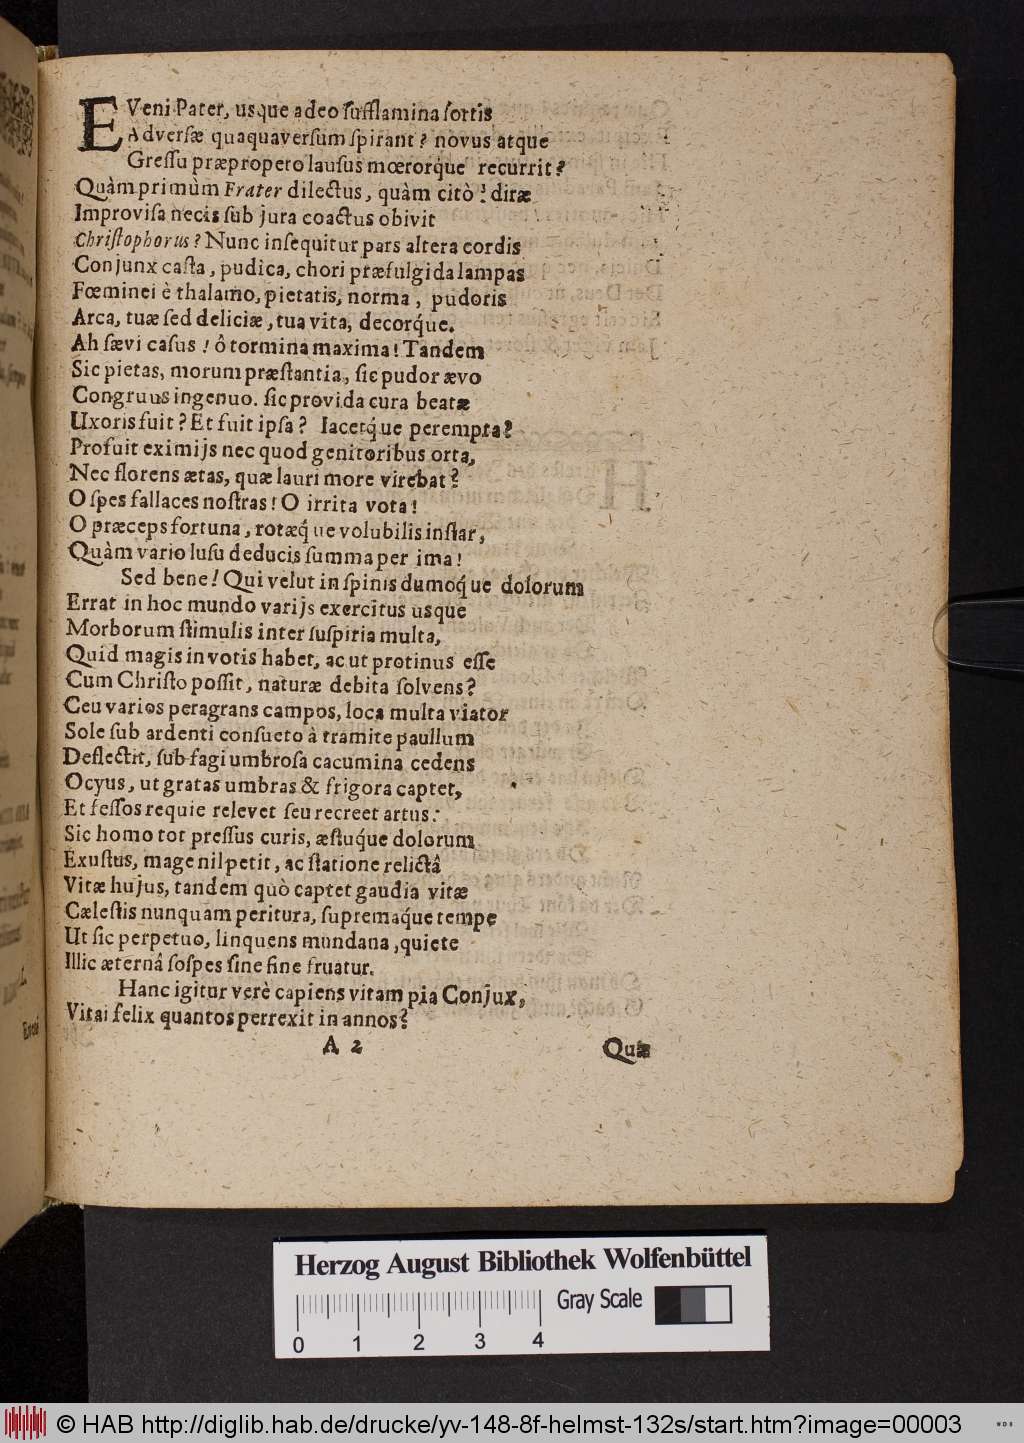 EVeni Pater, usque adeo sufflamina sortis
Adversæ quaquaversum spirant? novus atque
Gressu præpropero lausus mœrorq́ue recurrit?
Quàm primùm Frater dilectus, quàm citò! diræ
Improvisa necis sub jura coactus obivit
Christophorus? Nunc insequitur pars altera cordis
Conjunx casta, pudica, chori præfulgida lampas
Fœminei è thalamo, pietatis, norma, pudoris
Arca, tuæ sed deliciæ, tua vita, decorq́ue.
Ah sævi casus! ô tormina maxima! Tandem
Sic pietas, morum præstantia, sic pudor ævo
Congruus ingenuo. sic provida cura beatæ
Uxoris fuit? Et fuit ipsa? Iacetq́ue perempta?
Profuit eximijs nec quod genitoribus orta,
Nec florens ætas, quæ lauri more virebat?
O spes fallaces nostras! O irrita vota!
O præceps fortuna, rotæq́ue volubilis instar,
Quàm vario lusu deducis summa per ima!
Sed bene! Qui velut in spinis dumoq́ue dolorum
Errat in hoc mundo varijs exercitus usque
Morborum stimulis inter suspiria multa,
Quid magis in votis habet, ac ut protinus esse
Cum Christo possit, naturæ debita solvens?
Ceu varios peragrans campos, loca multa viator
Sole sub ardenti consueto à tramite paullum
Deflectit, sub fagi umbrosa cacumina cedens
Ocyus, ut gratas umbras & frigora captet,
Et fessos requie relevet seu recreet artus:
Sic homo tot pressus curis, æstuq́ue dolorum
Exustus, mage nil petit, ac statione relictâ
Vitæ hujus, tandem quò captet gaudia vitæ
Cælestis nunquam peritura, supremaq́ue tempe
Ut sic perpetuo, linquens mundana, quiete
Illic æternâ sospes sine fine fruatur.
Hanc igitur verè capiens vitam pia Conjux,
Vitai felix quantos perrexit in annos?
A 2 Quæ
Herzog August Bibliothek Wolfenbüttel
Gray Scale
0 1 2 3 4
© HAB http://diglib.hab.de/drucke/yv-148-8f-helmst-132s/start.htm?image=00003